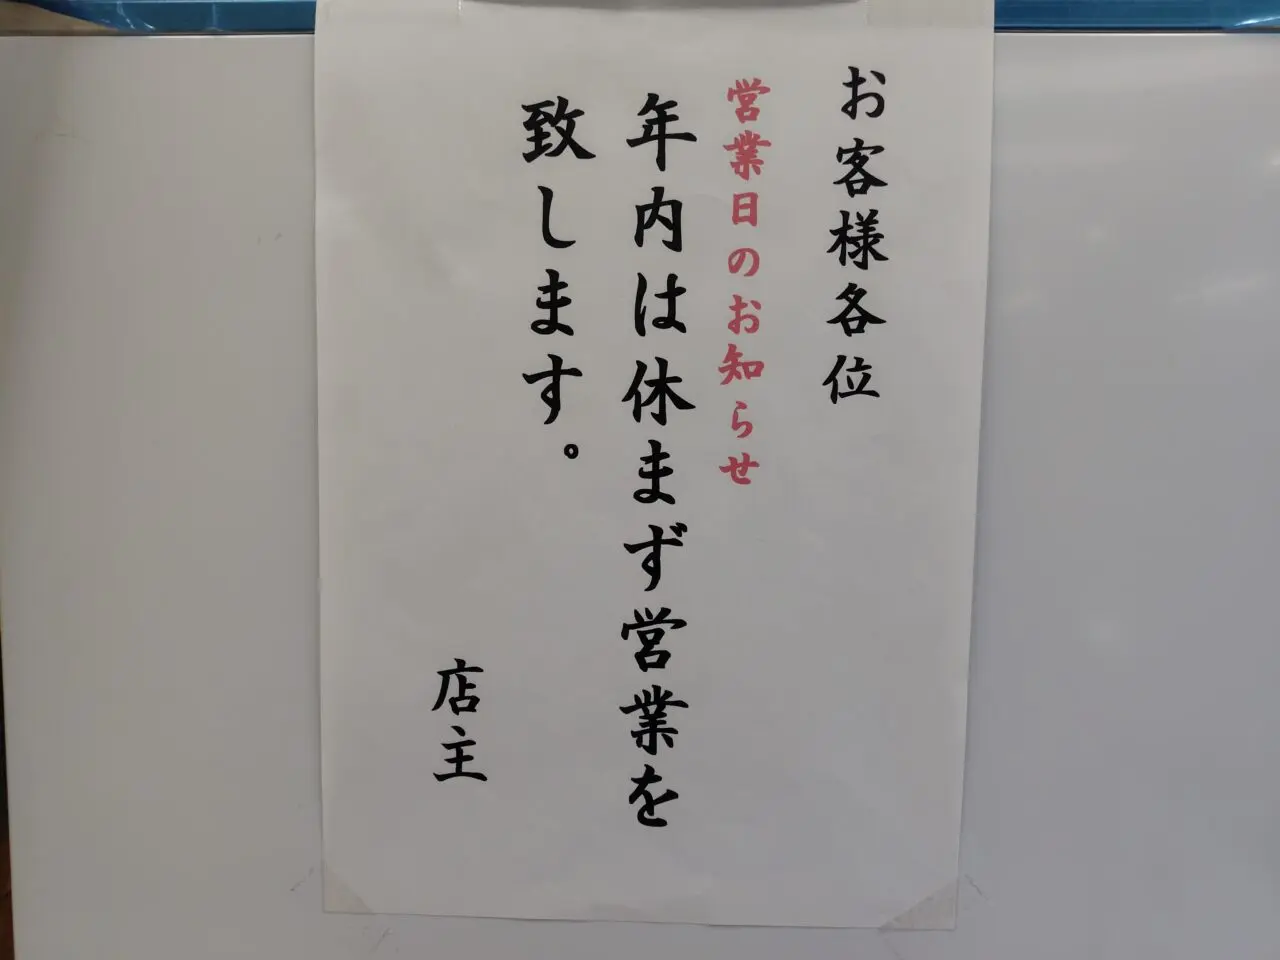 お客様各位
営業日のお知らせ
年内は休まず営業を
致します。
店主